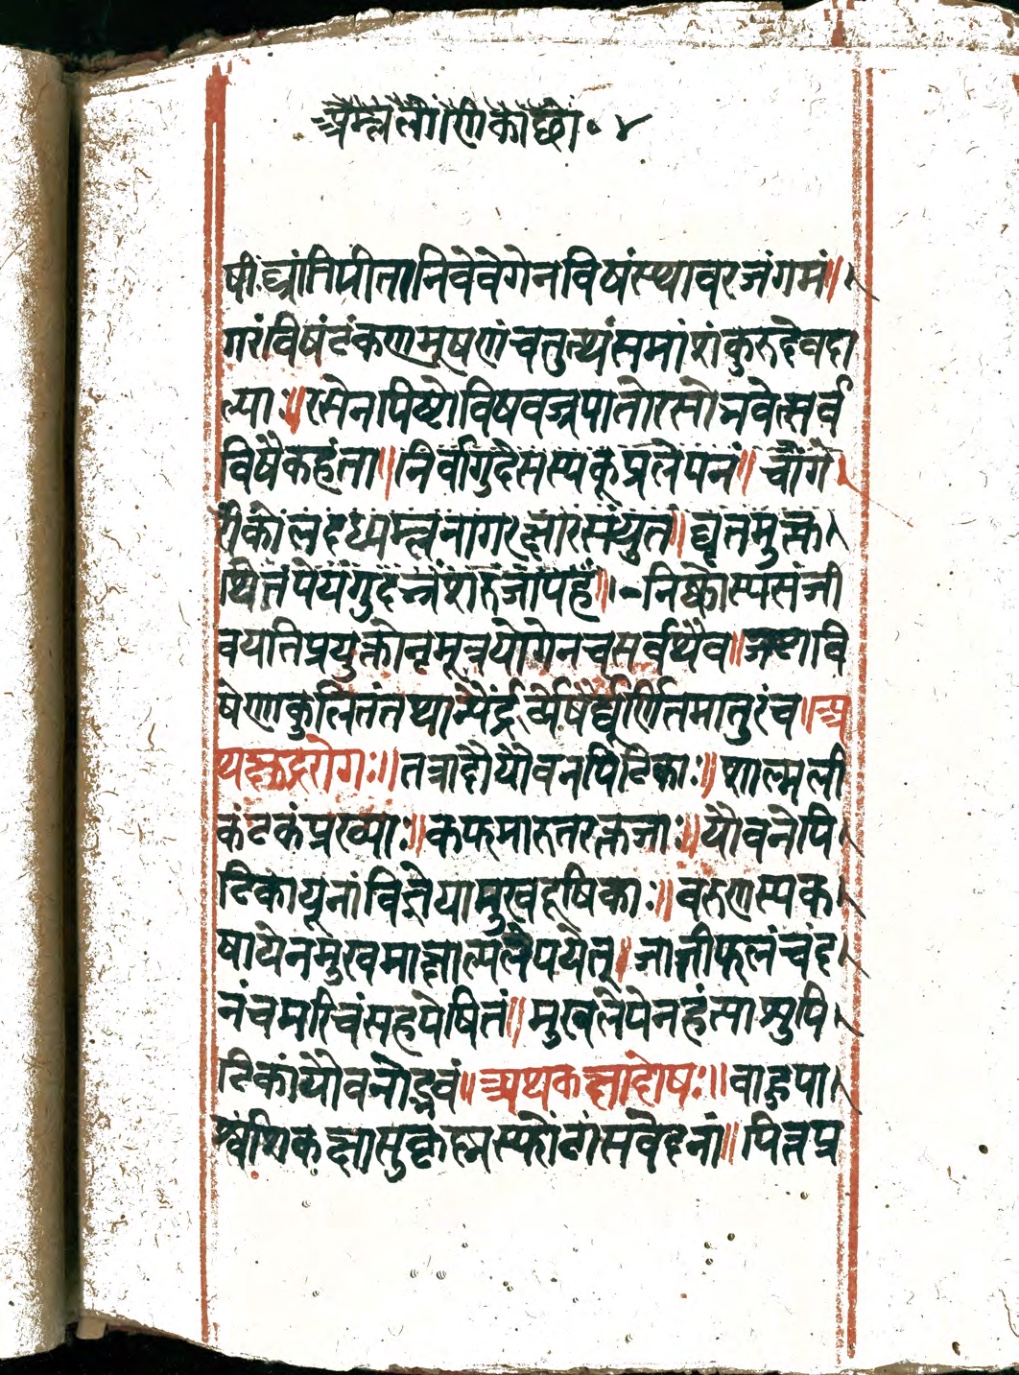 अम्ललोणिकाछो ॰ ४
षीघ्रांतिपीतानिवेवेगेनविषंस्थावरजंगमं॥
गरंविषंटंकणमूषणंचतुत्थंसमांशंकुरुदेवदा
ल्या॥रसेनपिष्टोविषवज्रपातोरसोभवेत्सर्व
विषैकहंता॥निर्वागुदेसस्यकूप्रलेपनं॥चांगे
रीकोलदध्यम्लनागरक्षारसंयुतं॥घृतमुत्क्व
थितंपेयंगुदभ्रंशरुजापहं॥निष्कोस्यसंजी
वयतिप्रयुक्तोनृमूत्रयोगेनचसर्वथैव॥जष्टावि
षेणकुलितंतथान्यै घूर्णितमातुरंच॥अ
थक्षुद्ररोगः॥तत्रादौयौवनपिटिकाः॥शाल्मली
कंटकंप्रख्याः॥कफमारुतरक्तजाः॥यौवनेपि
टिकायूनांविज्ञेयामुखदूषिकाः॥वरुणस्यक
षायेनमुखमाक्षाल्यलेपयेत्॥जातीफलंचंद
नंचमरिचंसहपेषितं॥मुखलेपेनहंत्साशुपि
टिकांयौवनोद्भवं॥अथकक्षादोषः॥वाहुपा
र्श्वांशकक्षासुकृष्णस्फोटांसवेदनां॥पित्तप्र